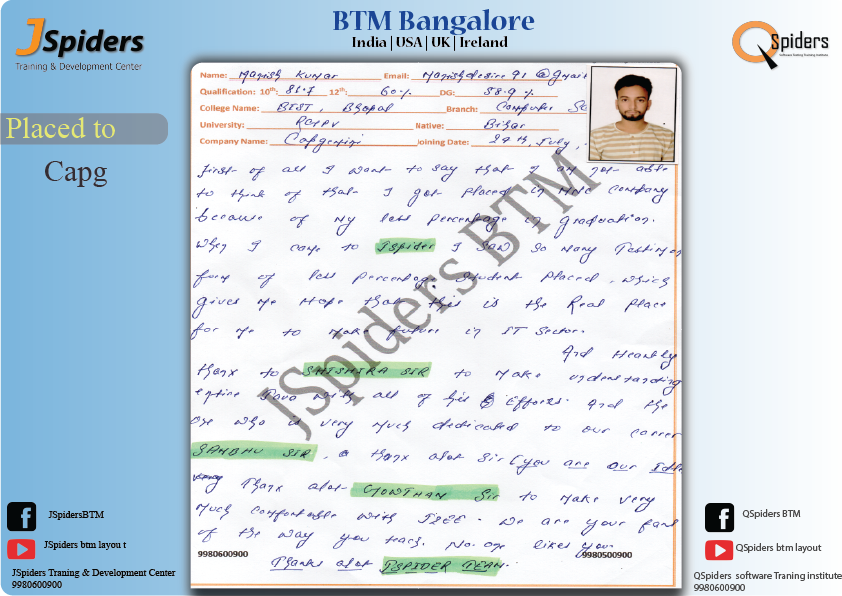 BTM Bangalore
India | USA | UK | Ireland
JSpiders
Training & Development Center
QSpiders
Software Testing Training Institute
Placed to
Capg
Name: Manish Kumar Email: Manishdesire91@gmail
Qualification: 10th: 81.7 12th: 60% DG: 58.9%
College Name: BIST, Bhopal Branch: Computer Sc
University: RGPV Native: Bihar
Company Name: Capgemini Joining Date: 29th, July,
First of all I want to say that I am not able
to think of that I got placed in MNC Company
because of my less percentage in graduation.
When I came to JSpider I saw so many Testimon
form of less percentage student placed, which
gives me Hope that this is the Real place
for me to make future in IT Sector.
And Heartly
thanx to SHISHIRA SIR to make understanding
entire Java with all of his Efforts. And the
one who is very much dedicated to our career
SAMBHU SIR, thanx alot Sir (you are our Idle
Thanx alot GOWTHAM Sir to make very
much comfortable with J2EE. We are your fans
of the way you teach. No one likes you.
Thanks alot JSPIDER TEAM.
JSpiders BTM
9980600900
9980500900
JSpidersBTM
JSpiders btm layou t
JSpiders Traning & Development Center
9980600900
QSpiders BTM
QSpiders btm layout
QSpiders software Traning institute
9980600900